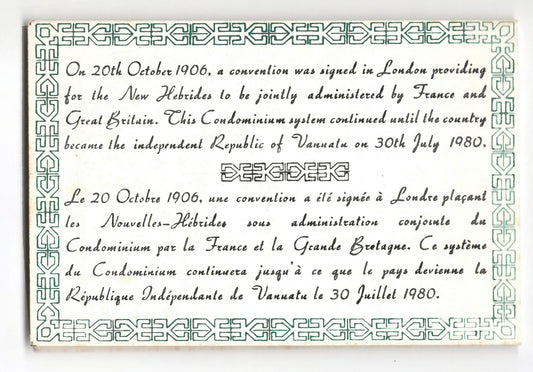 On 20th October 1906, a convention was signed in London providing
for the New Hebrides to be jointly administered by France and
Great Britain. This Condominium system continued until the country
became the independent Republic of Vanuatu on 30th July 1980.
Le 20 Octobre 1906, une convention a été signée à Londre plaçant
les Nouvelles-Hébrides sous administration conjointe du
Condominium par la France et la Grande Bretagne. Ce système
du Condominium continuera jusqu'à ce que le pays devienne la
République Indépendante de Vanuatu le 30 Juillet 1980.